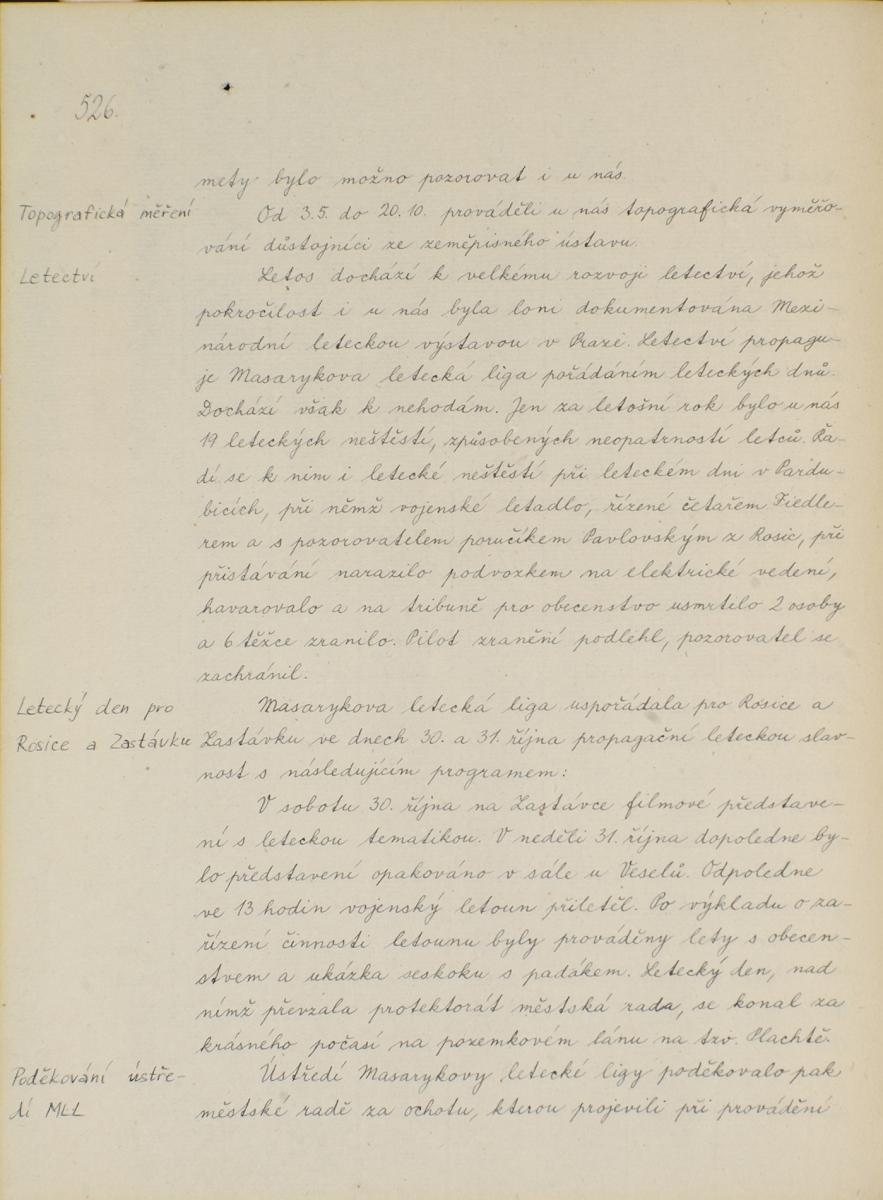 526.
mety bylo možno pozorovat i u nás.
Topografická měření
Od 3.5. do 20.10. prováděli u nás topografická vyměřo-
vání důstojníci ze zeměpisného ústavu.
Letectví
Letos dochází k velkému rozvoji letectví, jehož
pokročilost i u nás byla loni dokumentována Mezi-
národní leteckou výstavou v Praze. Letectví propagu-
je Masarykova letecká liga pořádáním leteckých dnů.
Dochází však k nehodám. Jen za letošní rok bylo u nás
19 leteckých neštěstí, způsobených neopatrností letců. Řa-
dí se k nim i letecké neštěstí při leteckém dni v Pardu-
bicích, při němž vojenské letadlo, řízené četařem Fiedle-
rem a s pozorovatelem poručíkem Pavlovským z Rosic, při
přistávání narazilo podvozkem na elektrické vedení,
havarovalo a na tribuně pro obecenstvo usmrtilo 2 osoby
a 6 těžce zranilo. Pilot zranění podlehl, pozorovatel se
zachránil.
Letecký den pro
Rosice a Zastávku
Masarykova letecká liga uspořádala pro Rosice a
Zastávku ve dnech 30. a 31. října propagační leteckou slav-
nost s následujícím programem:
V sobotu 30. října na Zastávce filmové představe-
ní s leteckou tematikou. V neděli 31. října dopoledne by-
lo představení opakováno v sále u Veselů. Odpoledne
ve 13 hodin vojenský letoun přiletěl. Po výkladu o za-
řízení činnosti letounu byly prováděny lety s obecen-
stvem a ukázka seskoku s padákem. Letecký den, nad
nímž převzala protektorát městská rada, se konal za
krásného počasí na pozemkovém lánu na tzv. Plachtě.
Poděkování ústře-
dí MLL
Ústředí Masarykovy letecké ligy poděkovalo pak
městské radě za ochotu, kterou projevili při provádění